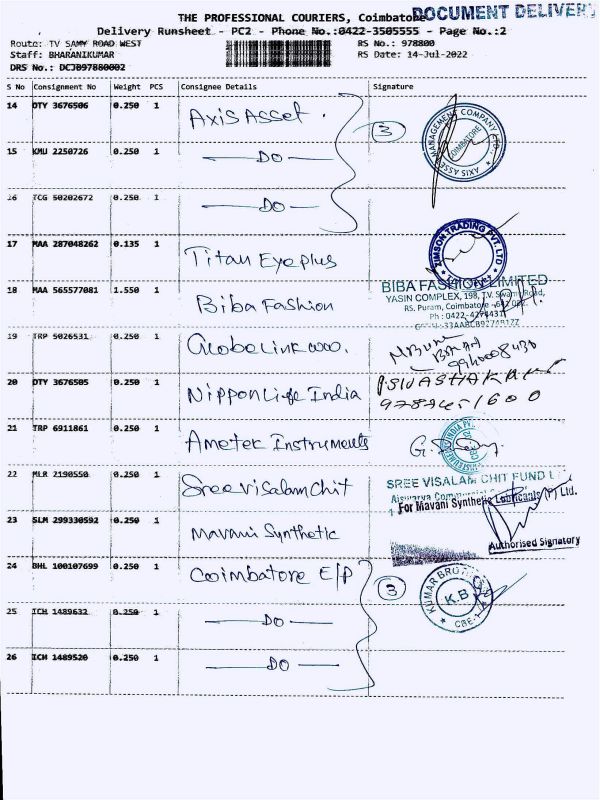 THE PROFESSIONAL COURIERS, Coimbatore
DOCUMENT DELIVERY
Delivery Runsheet - PC2 - Phone No.:0422-3505555 - Page No.:2
Route: TV SAMY ROAD WEST
RS No.: 978800
Staff: BHARANIKUMAR
RS Date: 14-Jul-2022
DRS No.: DCJ097880002
S No Consignment No Weight PCS Consignee Details Signature
14 DTY 3676506 0.250 1 Axis Asset.
3
AXIS ASSET MANAGEMENT COMPANY LTD.
COIMBATORE
15 KMU 2250726 0.250 1 DO
16 TCG 50202672 0.250 1 DO
17 MAA 287048262 0.135 1 Titan Eyeplus
ZIMSON TRADING PVT. LTD
18 MAA 565577081 1.550 1 Biba Fashion
BIBA FASHION LIMITED
YASIN COMPLEX, 198, T.V. Swamy Road,
RS. Puram, Coimbatore - 641 002.
Ph : 0422-4274431
19 TRP 5026531 0.250 1 Globe Link
20 DTY 3676505 0.250 1 Nippon Life India
21 TRP 6911861 0.250 1 Ametek Instruments
22 MLR 2190550 0.250 1 Sree Visalam Chit
SREE VISALAM CHIT FUND L
23 SLM 299330592 0.250 1 Mavani Synthetic
For Mavani Synthetic Lubricants (P) Ltd.
Authorised Signatory
24 BHL 100107699 0.250 1 Coimbatore E/P
3
KUMAR BROTHERS
K.B
CBE-1
25 ICH 1489632 0.250 1 DO
26 ICH 1489520 0.250 1 DO